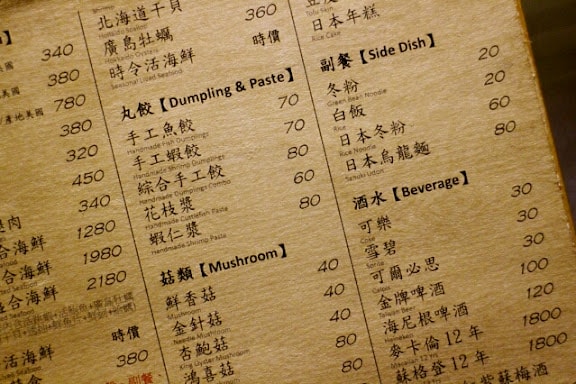 340
380
780
380
320
450
340
1280
合海鮮 1980
合海鮮 2180
合海鮮
時價
活海鮮 380
北海道干貝 360
Hokkaido Scallop
廣島牡蠣 時價
時令活海鮮
Seasonal Listed Seafood
丸餃【Dumpling & Paste】
手工魚餃 70
Handmade Fish Dumplings
手工蝦餃 70
Handmade Shrimp Dumplings
綜合手工餃 80
Handmade Dumplings Combo
花枝漿 60
Handmade Cuttlefish Paste
蝦仁漿 80
Handmade Shrimp Paste
菇類【Mushroom】
鮮香菇 40
Mushroom
金針菇 40
Needle Mushroom
杏鮑菇 40
King oyster Mushroom
鴻喜菇 40
Tofu Skin
日本年糕
Rice Cake
副餐【Side Dish】
冬粉 20
Green Bean Noodle
白飯 20
Rice
日本冬粉 60
Rice Noodle
日本烏龍麵 80
Sanuki Udon
酒水【Beverage】
可樂 30
Coke
雪碧 30
Sprite
可爾必思 30
Calpis
金牌啤酒 100
Taiwan Beer
海尼根啤酒 120
Heineken
麥卡倫12年 1800
蘇格登12年 1800
蘇梅酒